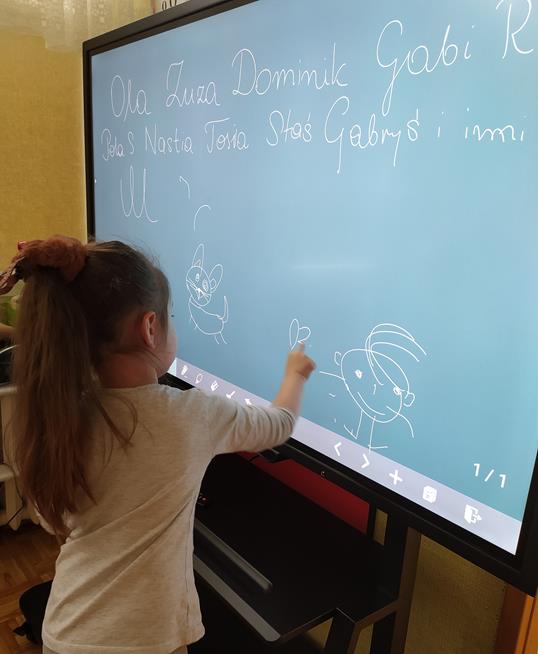 Ola Zuza Dominik Gabi R
Pola S Nastia Tosia Staś Gabryś i inni
1/1